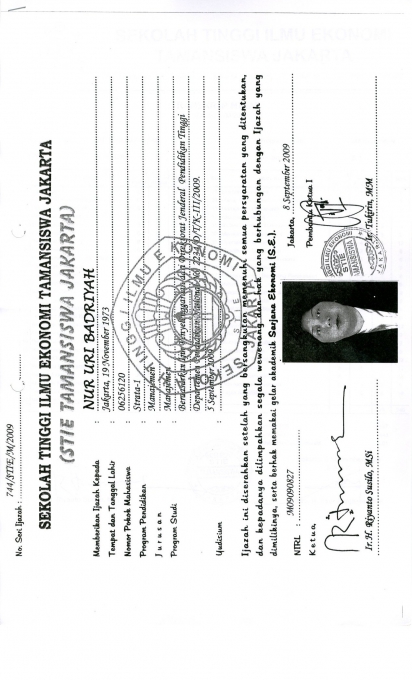 No. Seri Ijazah : 744/STIE/M/2009
SEKOLAH TINGGI ILMU EKONOMI TAMANSISWA JAKARTA
(STIE TAMANSISWA JAKARTA)
Memberikan Ijazah Kepada : NUR URI BADRIYAH
Tempat dan Tanggal Lahir : Jakarta, 19 November 1973
Nomor Pokok Mahasiswa : 06256120
Program Pendidikan : Strata-1
Jurusan : Manajemen
Program Studi : Manajemen
Berdasarkan Ijin Penyelenggaraan dari Direktorat Jenderal Pendidikan Tinggi
Departemen Pendidikan Nasional No. 1234/D/T/K-III/2009.
Yudisium : 5 September 2009
Ijazah ini diserahkan setelah yang bersangkutan memenuhi semua persyaratan yang ditentukan,
dan kepadanya dilimpahkan segala wewenang dan hak yang berhubungan dengan Ijazah yang
dimilikinya, serta berhak memakai gelar akademik Sarjana Ekonomi (S.E.).
NIRL : M09090827
Jakarta, 8 September 2009
Ketua,
Pembantu Ketua I
Ir. H. Riyanto Susilo, MSi
Ir. Tukirin, MM
SEKOLAH TINGGI ILMU EKONOMI
STIE
JAKARTA
STIE
TAMANSISWA
JAKARTA